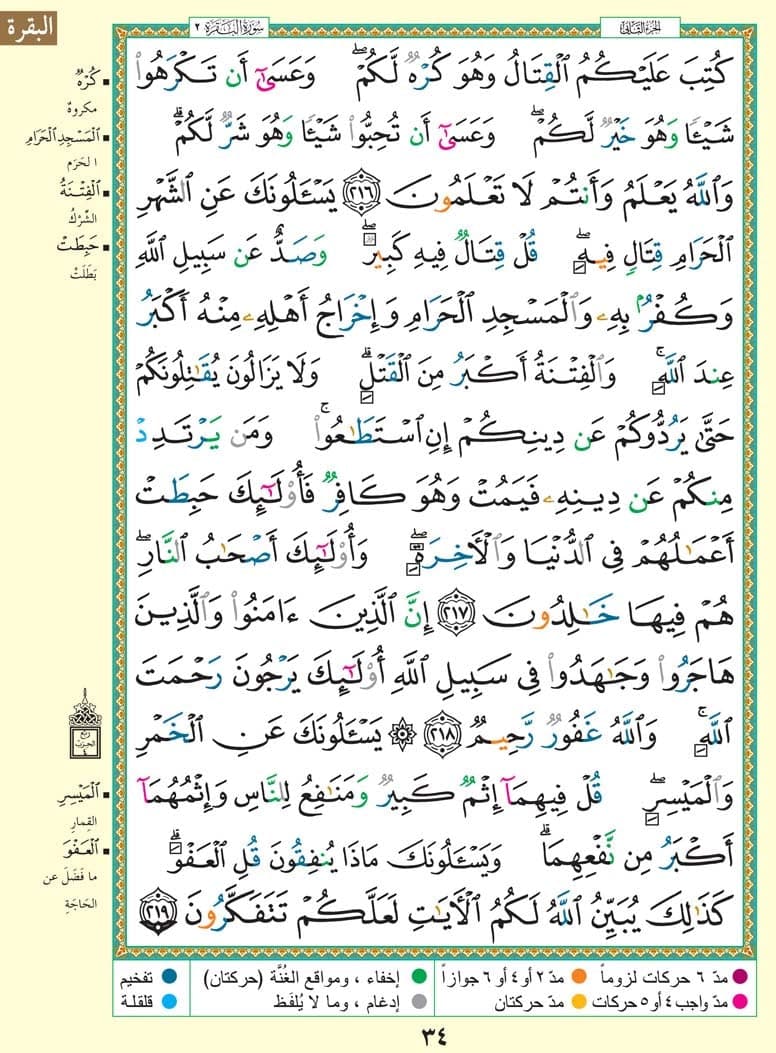 البقرة
الجزء الثاني
سورة البقرة ٢
كُتِبَ عَلَيْكُمُ ٱلْقِتَالُ وَهُوَ كُرْهٌۭ لَّكُمْ ۖ وَعَسَىٰٓ أَن تَكْرَهُوا۟
شَيْـًۭٔا وَهُوَ خَيْرٌۭ لَّكُمْ ۖ وَعَسَىٰٓ أَن تُحِبُّوا۟ شَيْـًۭٔا وَهُوَ شَرٌّۭ لَّكُمْ ۗ
وَٱللَّهُ يَعْلَمُ وَأَنتُمْ لَا تَعْلَمُونَ ٢١٦ يَسْـَٔلُونَكَ عَنِ ٱلشَّهْرِ
ٱلْحَرَامِ قِتَالٍۢ فِيهِ ۖ قُلْ قِتَالٌۭ فِيهِ كَبِيرٌۭ ۖ وَصَدٌّ عَن سَبِيلِ ٱللَّهِ
وَكُفْرٌۢ بِهِۦ وَٱلْمَسْجِدِ ٱلْحَرَامِ وَإِخْرَاجُ أَهْلِهِۦ مِنْهُ أَكْبَرُ
عِندَ ٱللَّهِ ۚ وَٱلْفِتْنَةُ أَكْبَرُ مِنَ ٱلْقَتْلِ ۗ وَلَا يَزَالُونَ يُقَـٰتِلُونَكُمْ
حَتَّىٰ يَرُدُّوكُمْ عَن دِينِكُمْ إِنِ ٱسْتَطَـٰعُوا۟ ۚ وَمَن يَرْتَدِدْ
مِنكُمْ عَن دِينِهِۦ فَيَمُتْ وَهُوَ كَافِرٌۭ فَأُو۟لَـٰٓئِكَ حَبِطَتْ
أَعْمَـٰلُهُمْ فِى ٱلدُّنْيَا وَٱلْـَٔاخِرَةِ ۖ وَأُو۟لَـٰٓئِكَ أَصْحَـٰبُ ٱلنَّارِ ۖ
هُمْ فِيهَا خَـٰلِدُونَ ٢١٧ إِنَّ ٱلَّذِينَ ءَامَنُوا۟ وَٱلَّذِينَ
هَاجَرُوا۟ وَجَـٰهَدُوا۟ فِى سَبِيلِ ٱللَّهِ أُو۟لَـٰٓئِكَ يَرْجُونَ رَحْمَتَ
ٱللَّهِ ۚ وَٱللَّهُ غَفُورٌۭ رَّحِيمٌۭ ٢١٨ ۞ يَسْـَٔلُونَكَ عَنِ ٱلْخَمْرِ
وَٱلْمَيْسِرِ ۖ قُلْ فِيهِمَآ إِثْمٌۭ كَبِيرٌۭ وَمَنَـٰفِعُ لِلنَّاسِ وَإِثْمُهُمَآ
أَكْبَرُ مِن نَّفْعِهِمَا ۗ وَيَسْـَٔلُونَكَ مَاذَا يُنفِقُونَ قُلِ ٱلْعَفْوَ ۗ
كَذَٰلِكَ يُبَيِّنُ ٱللَّهُ لَكُمُ ٱلْـَٔايَـٰتِ لَعَلَّكُمْ تَتَفَكَّرُونَ ٢١٩
كُرْهٌ
مكروهٌ
ٱلْمَسْجِدِ ٱلْحَرَامِ
الحَرَم
ٱلْفِتْنَةُ
الشِّرْكُ
حَبِطَتْ
بَطَلَتْ
ربع الحزب ٤
ٱلْمَيْسِرِ
القِمار
ٱلْعَفْوَ
ما فَضَلَ عن
الحَاجَةِ
مدّ ٦ حركات لزوماً
مدّ ٢ أو ٤ أو ٦ جوازاً
إخفاء ، ومواقع الغُنَّة (حركتان)
تفخيم
مدّ واجب ٤ أو ٥ حركات
مدّ حركتان
إدغام ، وما لا يُلفَظ
قلقلة
٣٤